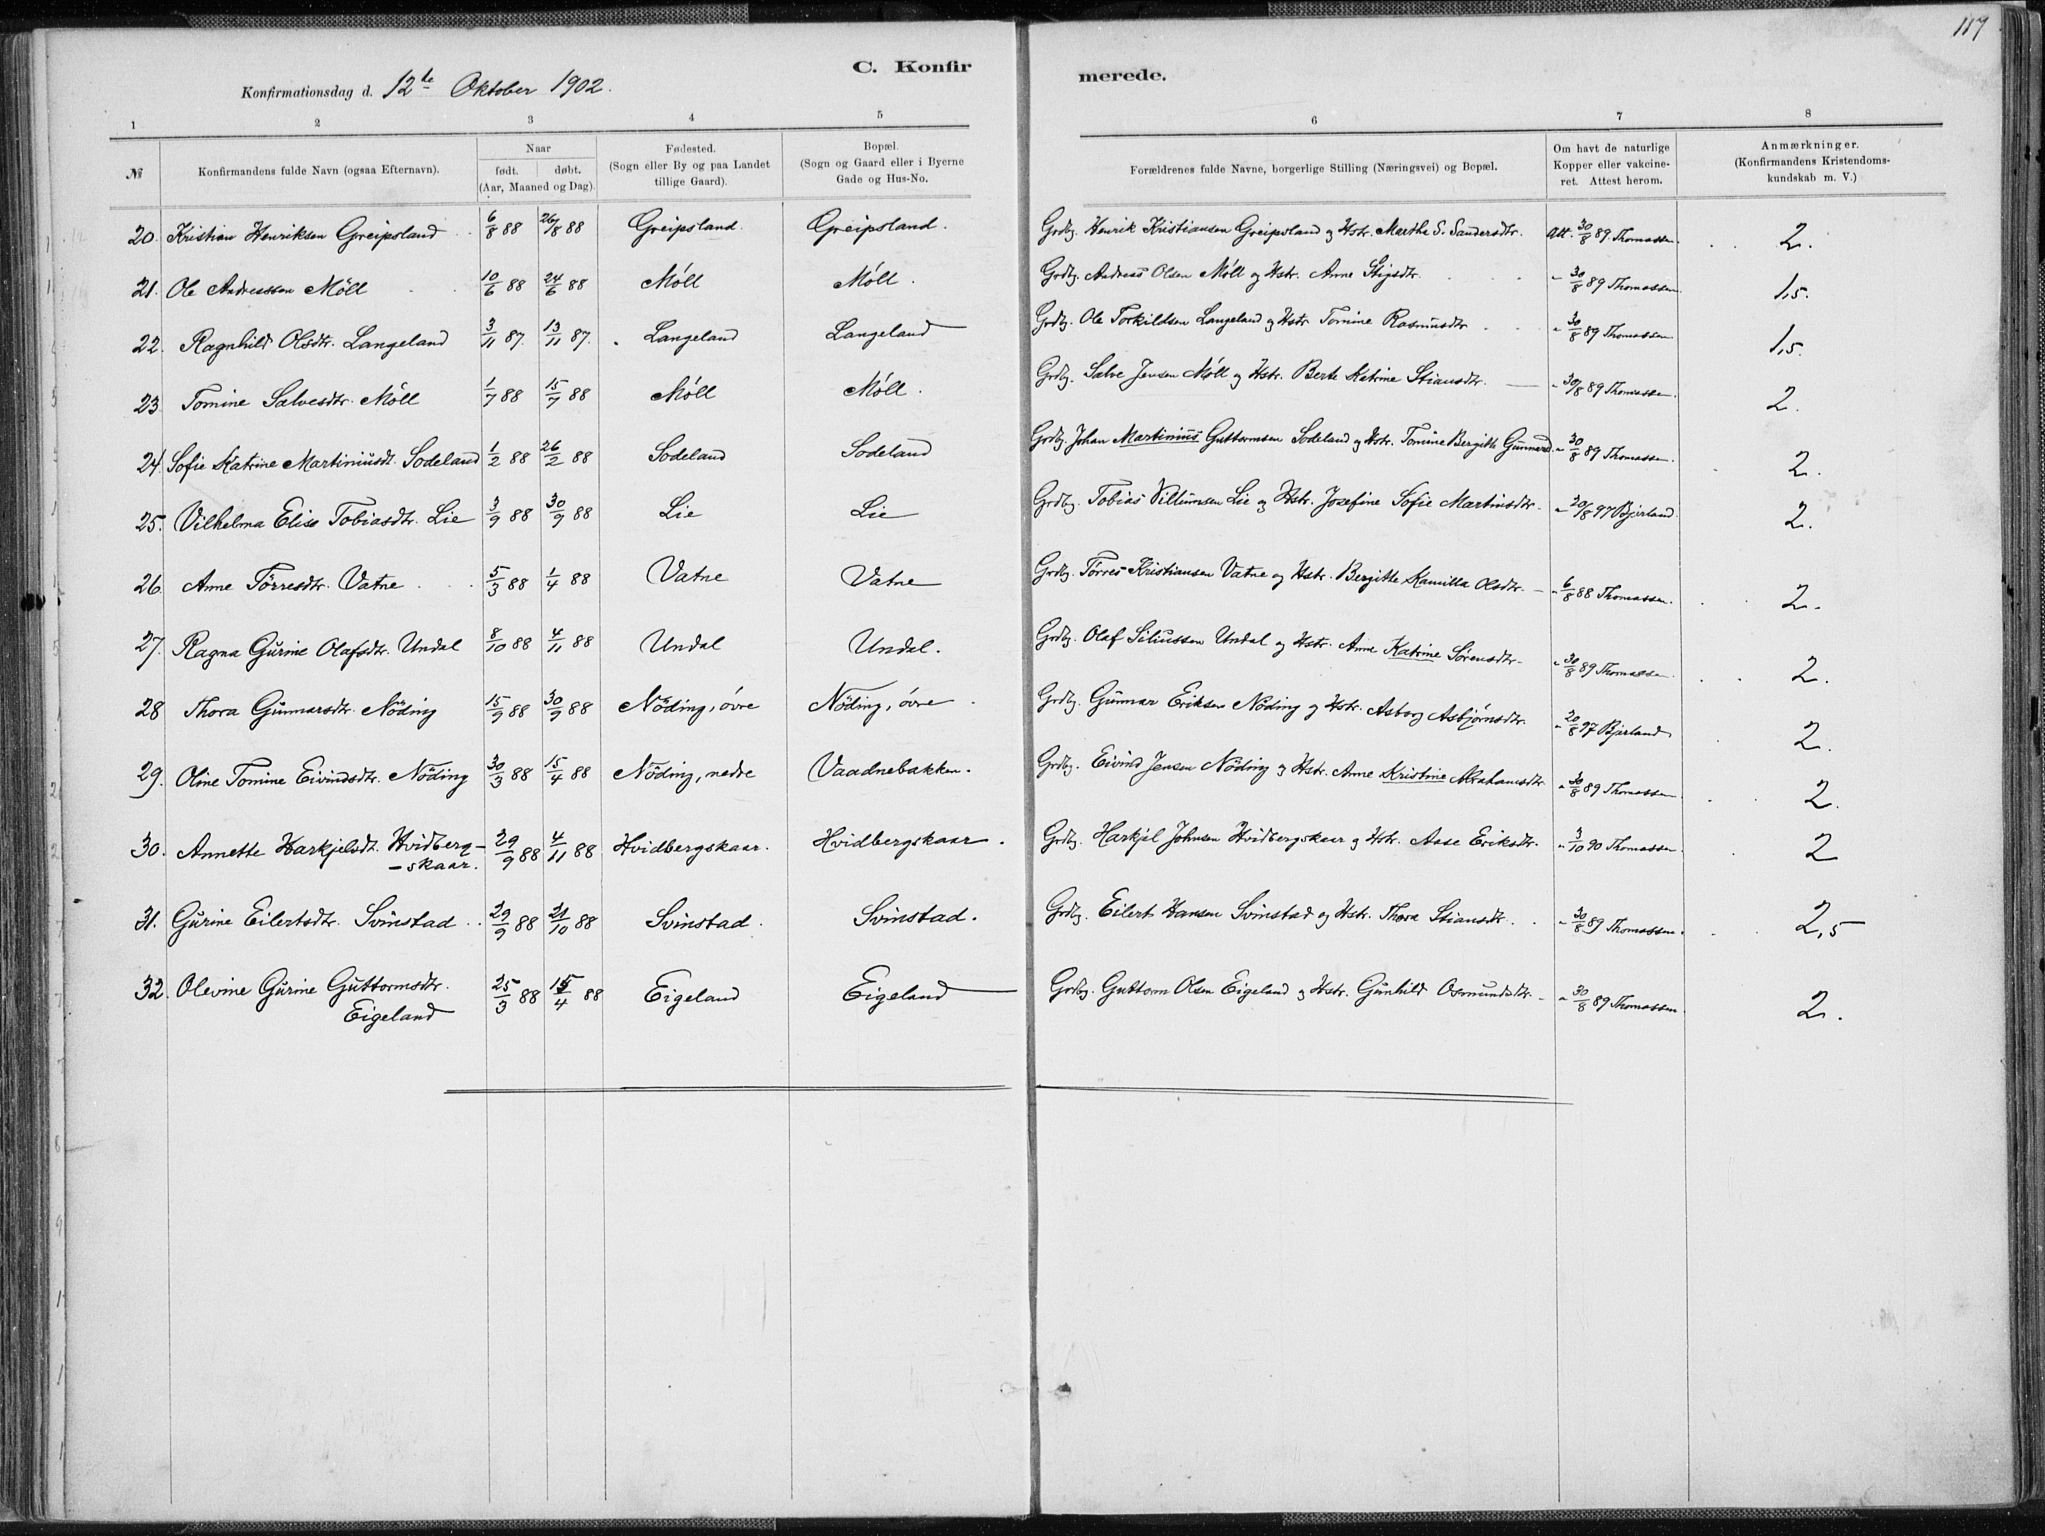 117
C. Konfir merede.
Konfirmationsdag d. 12te Oktober 1902.
1 2 3 4 5 6 7 8
№ Konfirmandens fulde Navn (ogsaa Efternavn). Naar født. døbt. (Aar, Maaned og Dag). Fødested. (Sogn eller By og paa Landet tillige Gaard). Bopæl. (Sogn og Gaard eller i Byerne Gade og Hus-No. Forældrenes fulde Navne, borgerlige Stilling (Næringsvei) og Bopæl. Om havt de naturlige Kopper eller vakcineret. Attest herom. Anmærkninger. (Konfirmandens Kristendomskundskab m. V.)
20. Kristian Henriksen Greipsland 6/8 88 26/8 88 Greipsland. Greipsland. Grdbg. Henrik Kristiansen Greipsland og Hstr. Marthe S. Sandersdtr. Att. 30/8 89. Thomassen. 2.
21. Ole Andreassen Möll 10/6 88 24/6 88 Möll Möll. Grdbg. Andreas Olsen Möll og Hstr. Anne Stigsdtr. " 30/8 89 Thomassen. 1,5.
22. Ragnhild Olsdtr. Langeland 3/11 87. 13/11 87. Langeland Langeland Grdbg. Ole Torkildsen Langeland og Hstr. Tomine Rasmusdtr " 30/8 89 Thomassen 1,5.
23. Tomine Salvesdtr. Möll 1/7 88 15/7 88 Möll Möll. Grdbg. Salve Jensen Möll og Hstr. Berte Katrine Stiansdtr. " 30/8 89 Thomassen. 2.
24. Sofie Katrine Martiniusdt. Sodeland 1/2 88 26/2 88 Sodeland Sodeland Grdbg. Johan Martinius Guttormsen Sodeland og Hstr. Tomine Bergitte Gunnarsd. " 30/8 89 Thomassen. 2.
25. Vilhelma Elise Tobiasdtr. Lie 3/9 88 30/9 88 Lie Lie Grdbg. Tobias Villumsen Lie og Hstr. Josefine Sofie Martinsdtr. " 20/8 97 Bjerland. 2.
26. Anne Törresdtr. Vatne 5/3 88 1/4 88 Vatne Vatne Grdbg. Törres Kristiansen Vatne og Hstr. Bergitte Kamilla Olsdtr. " 6/8 88 Thomassen. 2.
27. Ragna Gurine Olafsdtr. Undal 8/10 88 4/11 88 Undal Undal. Grdbg. Olaf Siliussen Undal og Hstr. Anne Katrine Sörensdtr. " 30/8 89 Thomassen. 2.
28 Thora Gunnarsdtr. Nöding 15/9 88 30/9 88 Nöding, övre Nöding, övre Grdbg. Gunnar Eriksen Nöding og Hstr. Asborg Asbjörnsdtr. " 20/8 97 Bjerland. 2.
29. Oline Tomine Eivindsdtr. Nöding 30/3 88 15/4 88 Nöding, nedre Vaadnebakken. Grdbg. Eivind Jensen Nöding og Hstr. Anne Kristine Abrahamsdtr. " 30/8 89 Thomassen 2.
30. Annette Harkjelsdt. Hvidberg- 29/9 88 4/11 88 Hvidbergskaar. Hvidbergskaar. Grdbg. Harkjel Johnsen Hvidbergskaar og Hstr. Aase Eriksdtr. " 3/10 90 Thomassen. 2
-skaar.
31. Gurine Eilertsdtr. Svinstad 29/9 88 21/10 88 Svinstad. Svinstad. Grdbg. Eilert Hansen Svinstad og Hstr. Thora Stiansdtr. " 30/8 89 Thomassen. 2,5
32. Olevine Gurine Guttormsdtr. 25/3 88 15/4 88 Eigeland Eigeland Grdbg. Guttorm Olsen Eigeland og Hstr. Gunhild Osmundsdtr. " 30/8 89 Thomassen. 2.
Eigeland